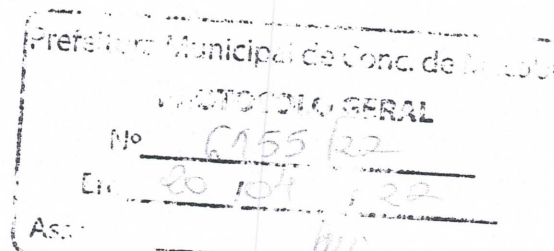 Prefeitura Municipal de Conc. de
PROTOCOLO GERAL
Nº 6155/22
Em 20/04/22
Ass.: